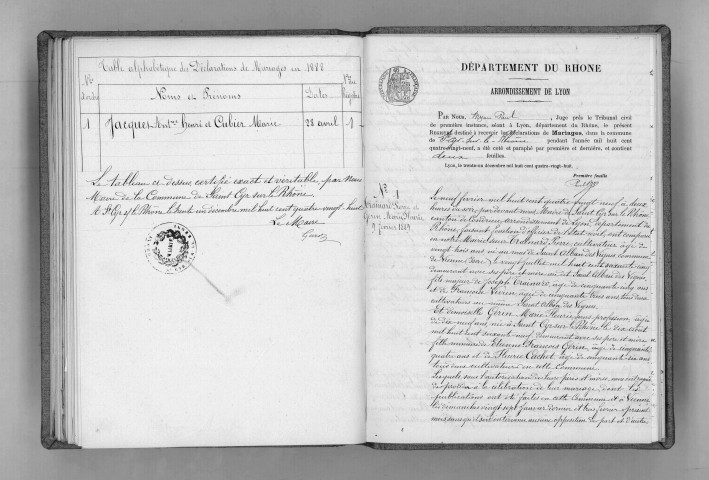 Table alphabétique des Déclarations de Mariages en 1888
Nos d'ordre
Noms et Prénoms
Dates
Nos du Registre
1
Jacques Antne Henri et Cubier Marie
28 avril
1
Le tableau ci dessus certifié exact et véritable, par Nous
Maire de la Commune de Saint Cyr sur le Rhône,
A St Cyr s/ le Rhône le trente un décembre mil huit cent quatre vingt huit
Le Maire
DÉPARTEMENT DU RHONE
ARRONDISSEMENT DE LYON
PAR NOUS, Juge près le Tribunal civil
de première instance, séant à Lyon, département du Rhône, le présent
REGISTRE destiné à recevoir les déclarations de Mariages, dans la commune
de St Cyr-sur-le-Rhône pendant l'année mil huit cent
quatre-vingt-neuf, a été coté et paraphé par première et dernière, et contient
deux feuilles.
Lyon, le trente-un décembre mil huit cent quatre-vingt-huit
Première feuille
No 1
Gerin Marie Fleurie
9 février 1889
Le neuf février mil huit cent quatre vingt neuf à deux
heures du soir par devant nous Maire de Saint Cyr sur le Rhône,
canton de Condrieu arrondissement de Lyon, département du
Rhône, faisant fonction d'officier de l'état civil, ont comparu
en notre Mairie Pierre, cultivateur âgé de
vingt trois ans né au de Saint Alban des Vignes commune
de Vienne (Isère) le vingt juillet mil huit cent soixante cinq
demeurant avec ses père et mère au dit Saint Alban des Vignes,
fils majeur de Joseph âgé de cinquante cinq ans
et de Françoise âgée de cinquante trois ans tous deux
cultivateurs au même Saint Alban des Vignes,
Et demoiselle Gerin Marie Fleurie sans profession, âgée
de dix neuf ans née à Saint Cyr sur le Rhône le dix août
mil huit cent soixante neuf, demeurant avec ses père et mère
fille mineure de Etienne François Gerin, âgé de cinquante
quatre ans et de Fleurie Cachet âgée de cinquante six ans
tous deux cultivateurs en cette commune
Lesquels sous l'autorisation de leurs pères et mères, nous ont requis
de procéder à la célébration de leur mariage, dont les
publications ont été faites en cette commune et à Vienne
les dimanches vingt sept janvier dernier et trois février présent
mois sans qu'il soit intervenu aucune opposition de part et d'autre